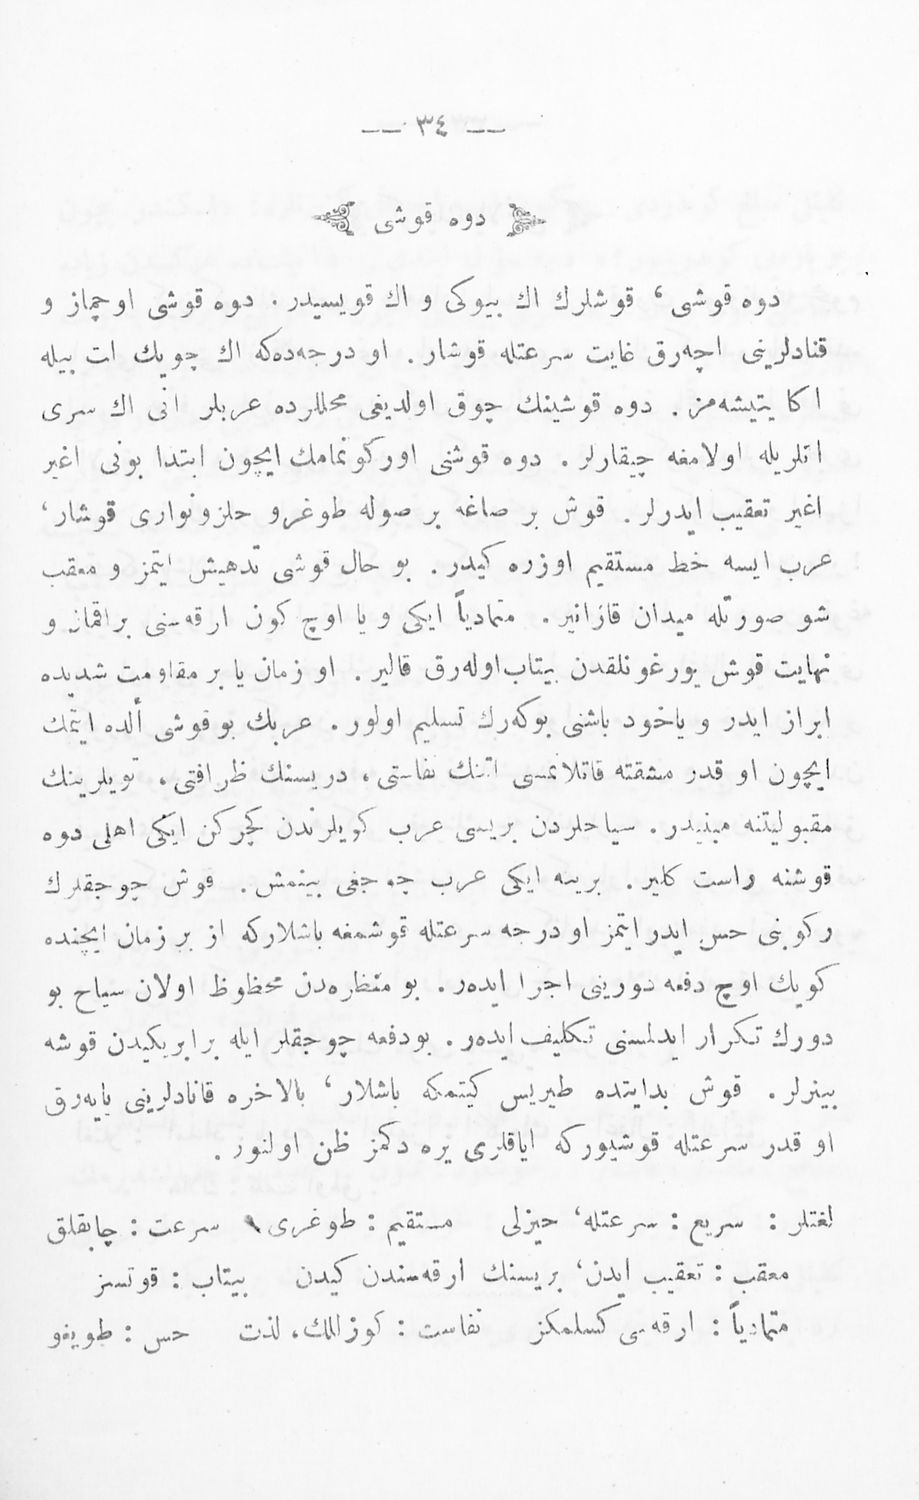 — ٣٤ —
دوه قوشی
دوه قوشی، قوشلرك اك بیوكی و اك قویسیدر. دوه قوشی اوچماز و
قنادلرینی اچه‌رق غایت سرعتله قوشار. او درجه‌ده‌كه اك چوپك ات بیله
اكا یتیشه‌مز. دوه قوشینك چوق اولدیغی محللرده عربلر انی اك سری
اتلریله اولامغه چیقارلر. دوه قوشنی اوركوتمامك ایچون ابتدا بونی اغیر
اغیر تعقیب ایدرلر. قوش بر صاغه بر صوله طوغرو حلزونواری قوشار،
عرب ایسه خط مستقیم اوزره كیدر. بو حال قوشی تدهیش ایتمز و معقب
شو صورتله میدان قازانیر. متمادیاً ایكی ویا اوچ كون ارقه‌سنی براقماز و
نهایت قوش یورغونلقدن بیتاب اوله‌رق قالیر. او زمان یا بر مقاومت شدیده
ابراز ایدر ویاخود باشنی بوكه‌رك تسلیم اولور. عربك بو قوشی ألده ایتمك
ایچون او قدر مشقته قاتلانمسی اتنك نفاستی، دریسنك ظرافتی، تویلرینك
مقبولیتنه مبنیدر. سیاحلردن بریسی عرب كویلرندن كچركن ایكی اهلی دوه
قوشنه راست كلیر. برینه ایكی عرب چوجغی بینمش. قوش چوجقلرك
ركوبنی حس ایدر ایتمز او درجه سرعتله قوشمغه باشلاركه از بر زمان ایچنده
كویك اوچ دفعه دورینی اجرا ایده‌ر. بو منظره‌دن محظوظ اولان سیاح بو
دورك تكرار ایدلمسنی تكلیف ایده‌ر. بودفعه چوجقلر ایله برابر یكیدن قوشه
بینرلر. قوش بدایتده طیریس كیتمكه باشلار، بالاخره قانادلرینی یایه‌رق
او قدر سرعتله قوشیوركه ایاقلری یره دكمز ظن اولنور.
لغتلر : سریع : سرعتله، حیزلی مستقیم : طوغری سرعت : چابقلق
معقب : تعقیب ایدن، بریسنك ارقه‌سندن كیدن بیتاب : قوتسز
متمادیاً : ارقه‌سی كسلمكز نفاست : كوزللك، لذت حس : طویغو